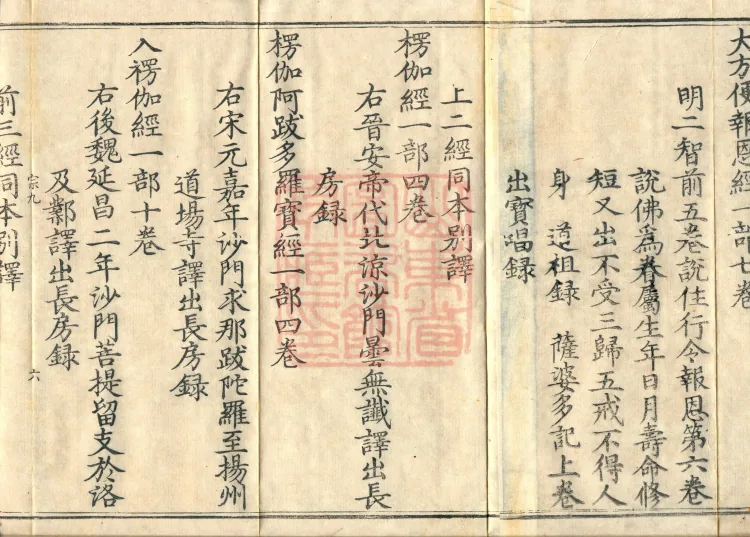 大方便報恩經一部七卷
明二智前五卷說住行令報恩第六卷
說佛爲眷屬生年日月壽命修
短又出不受三歸五戒不得人
身 道祖録 薩婆多記上卷
出寶唱録
上二經同本別譯
楞伽經一部四卷
右晉安帝代北涼沙門曇無讖譯出長
房録
楞伽阿跋多羅寶經一部四卷
右宋元嘉年沙門求那跋陀羅至揚州
道場寺譯出長房録
入楞伽經一部十卷
右後魏延昌二年沙門菩提留支於洛
及鄴譯出長房録
宗九 六
前三經同本別譯